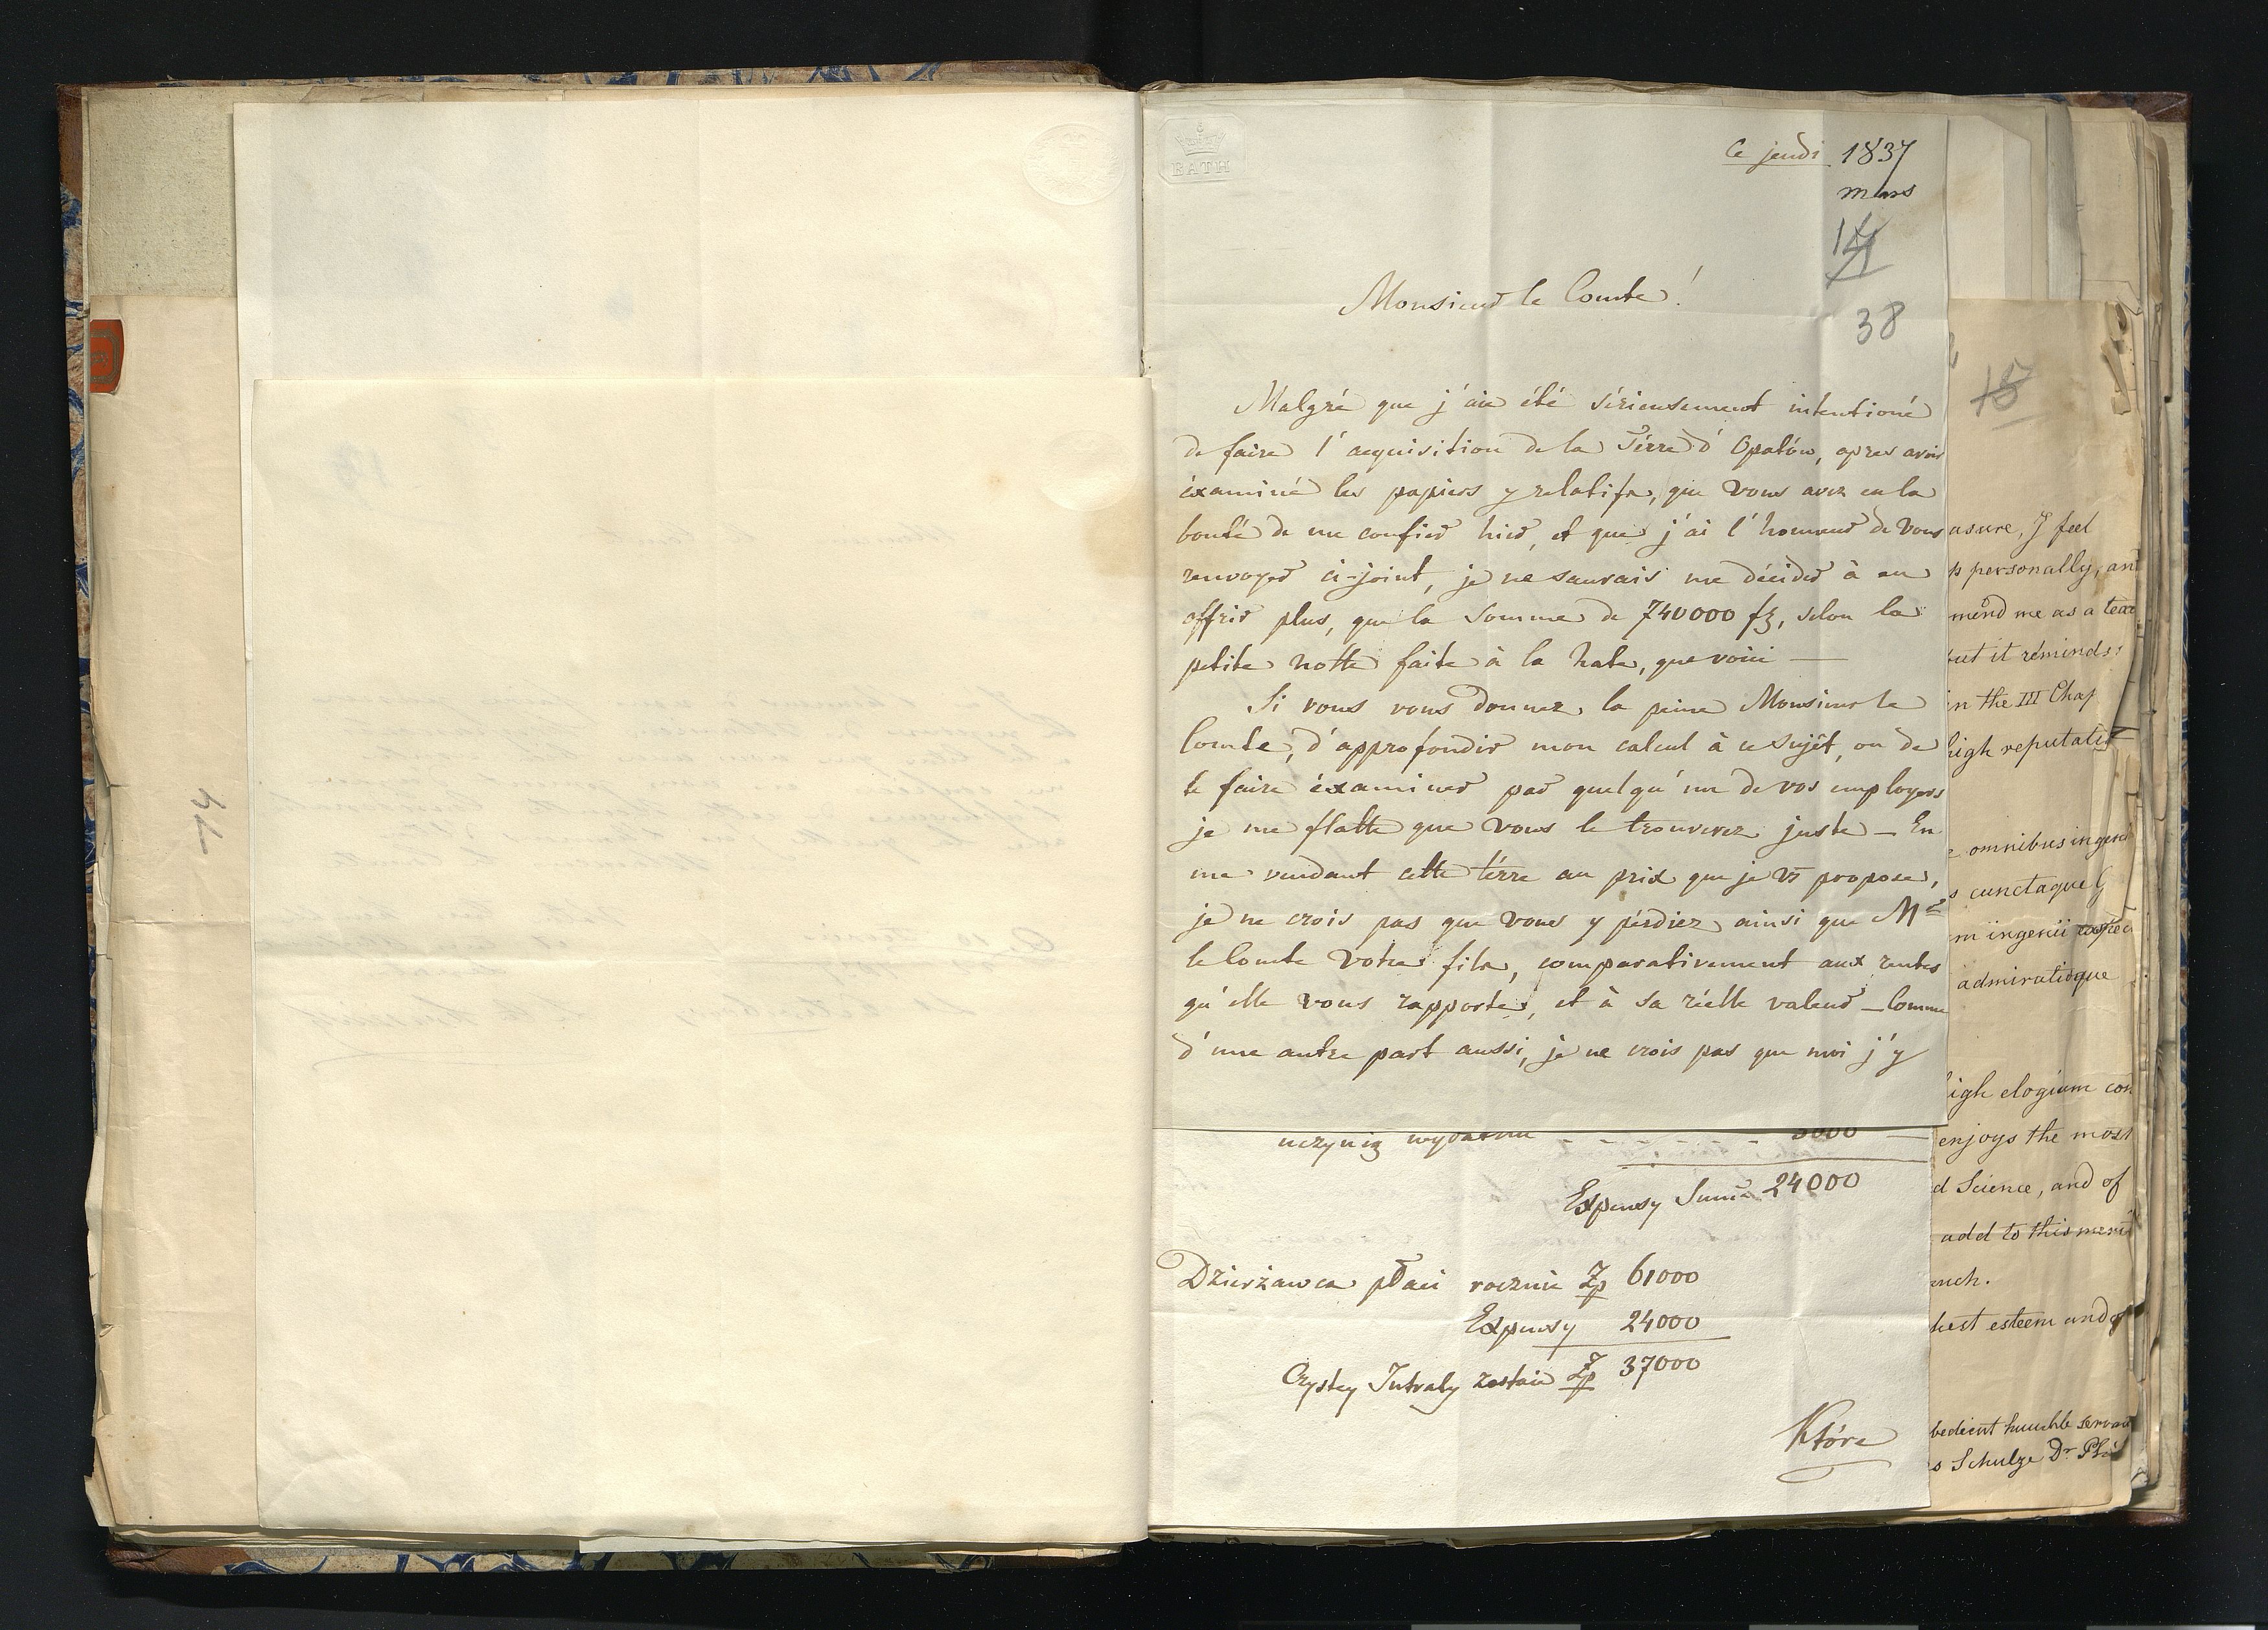 BATH
Ce jeudi 1837
mars
14
38
Monsieur le Comte!
Malgré que j'aie été sérieusement intentioné
de faire l'acquisition de la Térre d'Opatów, apres avoir
éxaminé les papiers y relatifs, que vous avez eu la
bonté de me confier hier, et que j'ai l'honneur de vous
renvoyer ci-joint, je ne saurais me décider à en
offrir plus, que la somme de 740000 fz, selon la
petite notte faite à la hate, que voici —
Si vous vous donnez la peine Monsieur le
Comte, d'approfondir mon calcul à ce sujét, ou de
le faire éxaminer par quelqu'un de vos employers
je me flatte que vous le trouverez juste — En
me vendant cette térre au prix que je vs propose,
je ne crois pas que vous y pérdiez ainsi que Mr
le Comte votre fils, comparativement aux rentes
qu'elle vous rapporte, et à sa réelle valeur — Comme
d'une autre part aussi, je ne crois pas que moi j'y
uczynią wydatku - - - - - - - 3000 —
Expensy Summa 24000
Dzierżawca płaci rocznie Zp 61000
Expensy 24000
Czystey Intraty zostaie Zp 37000
Które
15
assure, I feel
personally, an
mend me as a
but it reminds
in the III Chap
high reputati
omnibus ingeni
cunctaque
ingenii
admiratioque
high elogium con
enjoys the most
d Science, and of
add to this meri
hest esteem and
bedient humble servan
Schulze Dr. Ph
14